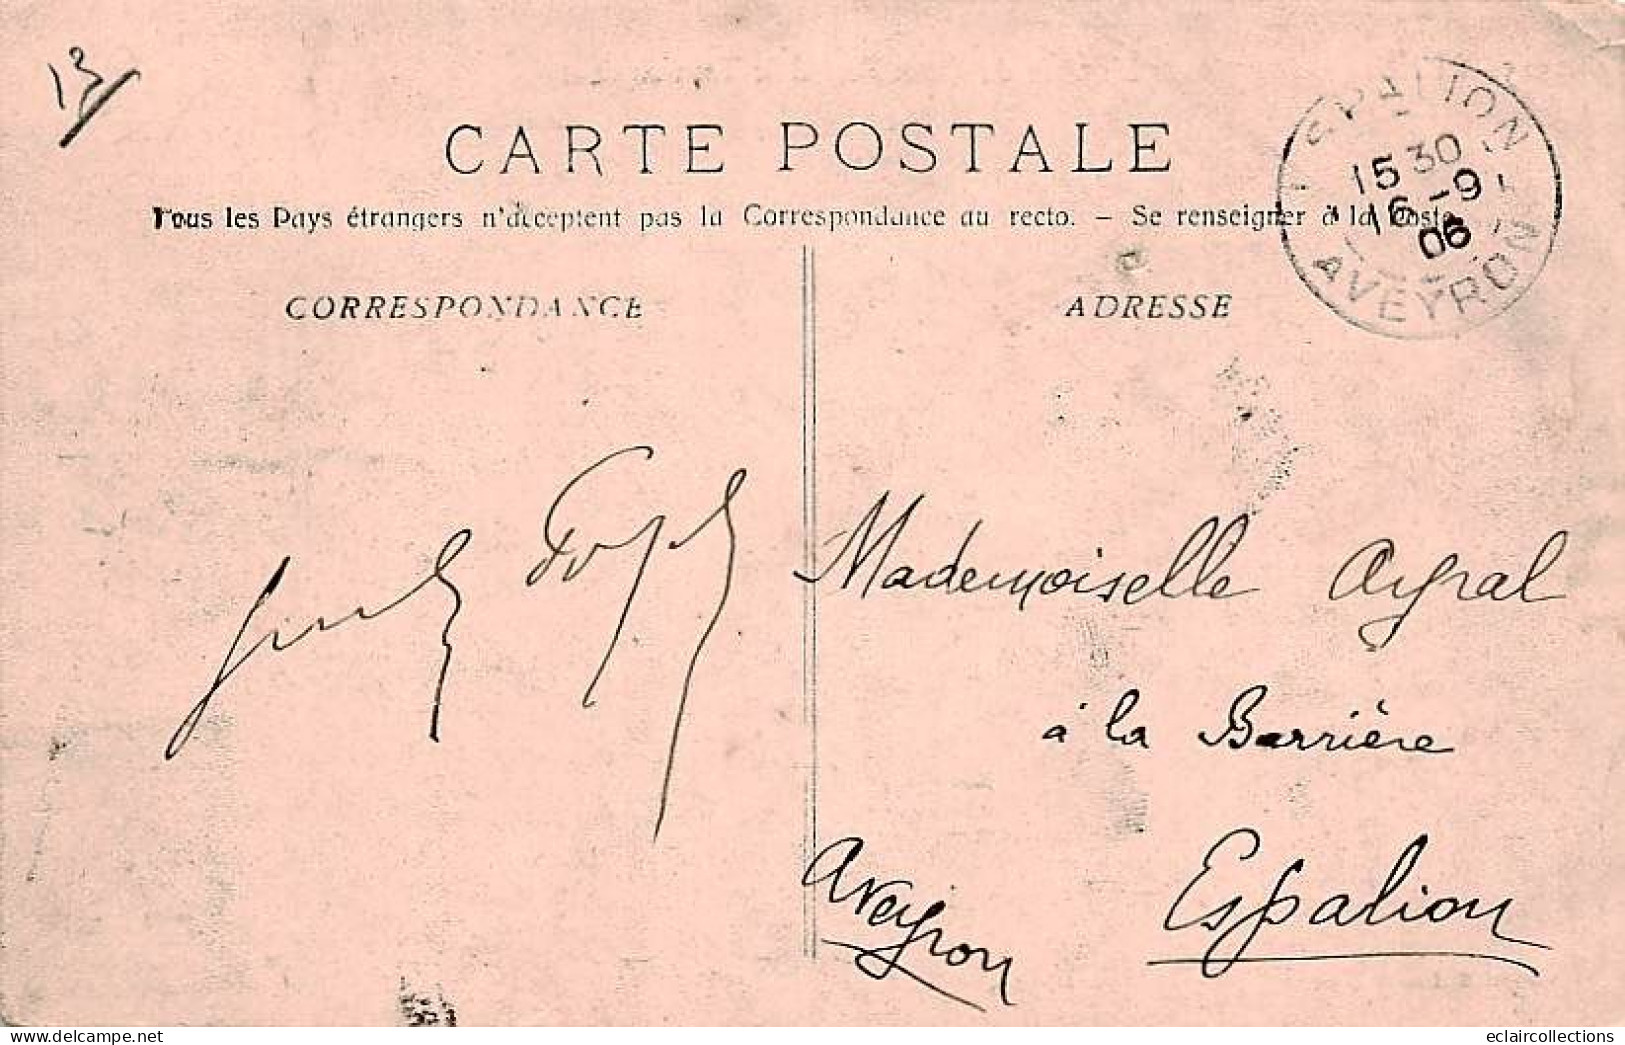 13
CARTE POSTALE
Tous les Pays étrangers n'acceptent pas la Correspondance au recto. – Se renseigner à la Poste
ESPALION
15 30
16 -9
06
AVEYRON
CORRESPONDANCE
ADRESSE
Mademoiselle Ayral
à la Barrière
Espalion
Aveyron
eclaircollections